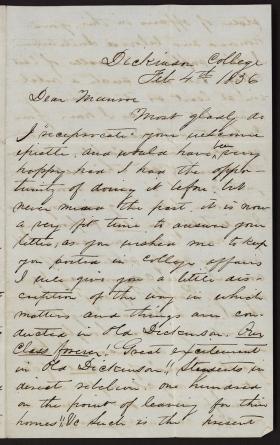 Dickinson College
Feb 4th 1836
Dear Munroe
Most gladly do
I "reciprocate" your welcome
epistle, and would have been very
happy had I had the oppor-
tunity of doing it before, but
never mind the past, it is now
a very fit time to answer your
letter, as you wished me to keep
you posted in College affairs
I will give you a little dis-
cription of the way in which
matters and things are con-
ducted in Old Dickinson. Our
Class forever! Great excitement
in Old Dickinson!! Students in
direct rebelion one hundred
on the point of leaving for their
homes!! &c Such is the present